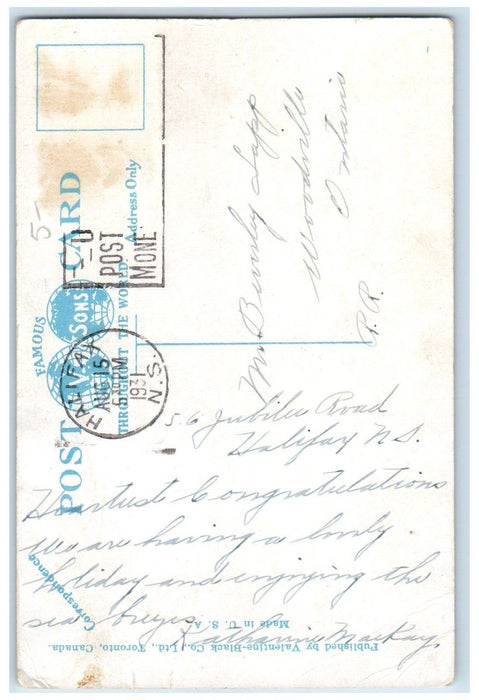 FAMOUS
POST CARD
V & SONS
THROUGHOUT THE WORLD.
Address Only
Correspondence
5-
U
POST
MONE
HALIFAX
AUG 15
5 PM
1931
N.S.
Mr Beverley Lapp
Woodville
Ontario
R.R.
56 Jubilee Road
Halifax N.S.
Heartiest Congratulations
We are having a lovely
holiday and enjoying the
sea breezes
Katharine MacKay.
Made in U. S. A.
Published by Valentine-Black Co., Ltd., Toronto, Canada.